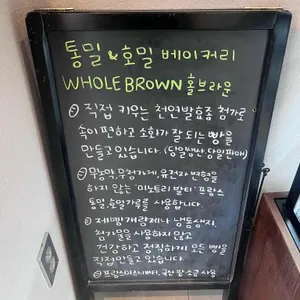 통밀 & 호밀 베이커리
WHOLE BROWN 홀브라운
직접 키우는 천연발효종 첨가로
속이 편하고 소화가 잘 되는 빵을
만들고 있습니다 (당일생산 당일판매)
무농약, 무첨가제, 유전자 변형을
하지 않는 이노트리 발티 프랑스
통밀, 호밀가루를 사용합니다.
제빵개량제나 냉동생지,
첨가물 사용하지 않고
건강하고 정직하게 모든 빵을
직접만들고 있습니다.
프랑스 버터, 국산 팥, 소금 사용